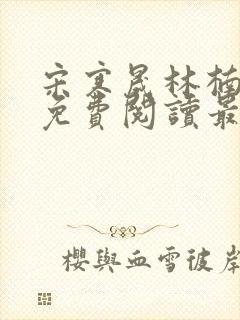 宋寒晟林楠
免費閱讀最
櫻與血雪彼岸